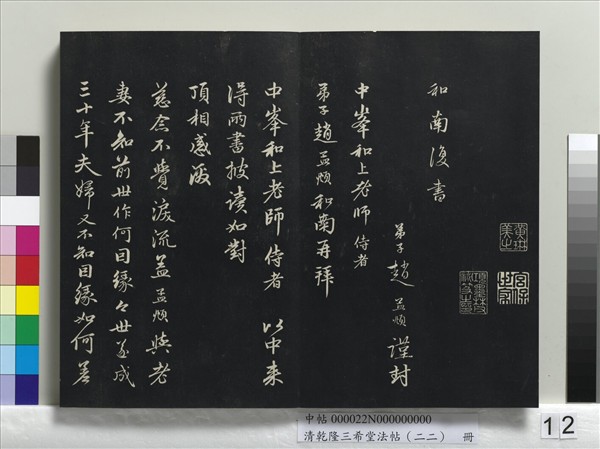 和南復書
弟子趙孟頫謹封
中峯和上老師侍者
弟子趙孟頫和南再拜
中峯和上老師侍者 以中来
得兩書披讀如對
頂相感激
慈念不覺淚流盖孟頫與老
妻不知前世作何因緣今世遂成
三十年夫婦又不知因緣如何差
黄琳美之
宮保世家
中帖 000022N000000000
清乾隆三希堂法帖（二二） 冊
12